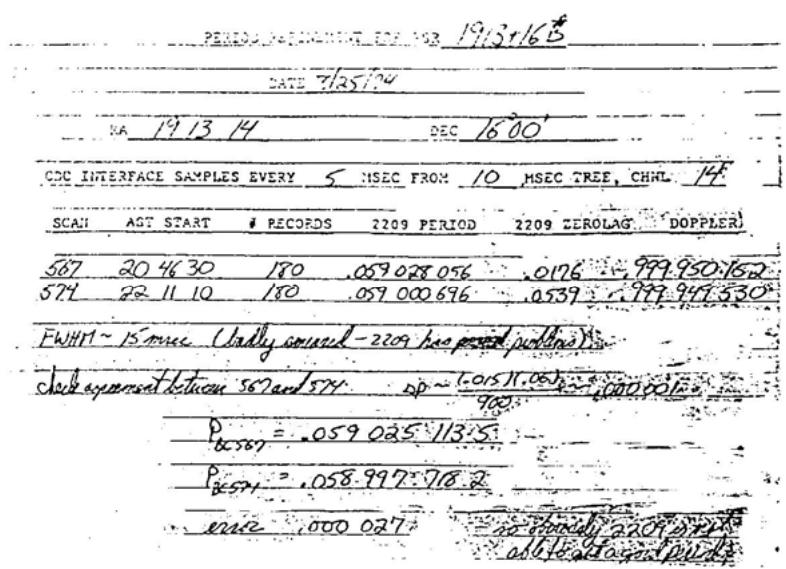 PERIOD REFINEMENT FOR PSR 1913+16
DATE 7/25/74
RA 19 13 14 DEC 16°00'
CDC INTERFACE SAMPLES EVERY 5 MSEC FROM 10 MSEC TREE, CHNL 14
SCAN AST START # RECORDS 2209 PERIOD 2209 ZEROLAG DOPPLER
567 20 46 30 180 .059 028 056 .0176 .999 950 152
574 22 11 10 180 .059 000 696 .0539 .999 949 530
FWHM ~ 15 msec (badly smeared - 2209 has problems).
check agreement between 567 and 574 ΔP ~ (.015)(.06)/900 ~ .000 001
P 567 = .059 025 113 5
P 574 = .058 997 718 2
error .000 027 so obviously 2209 is not
able to get a good period